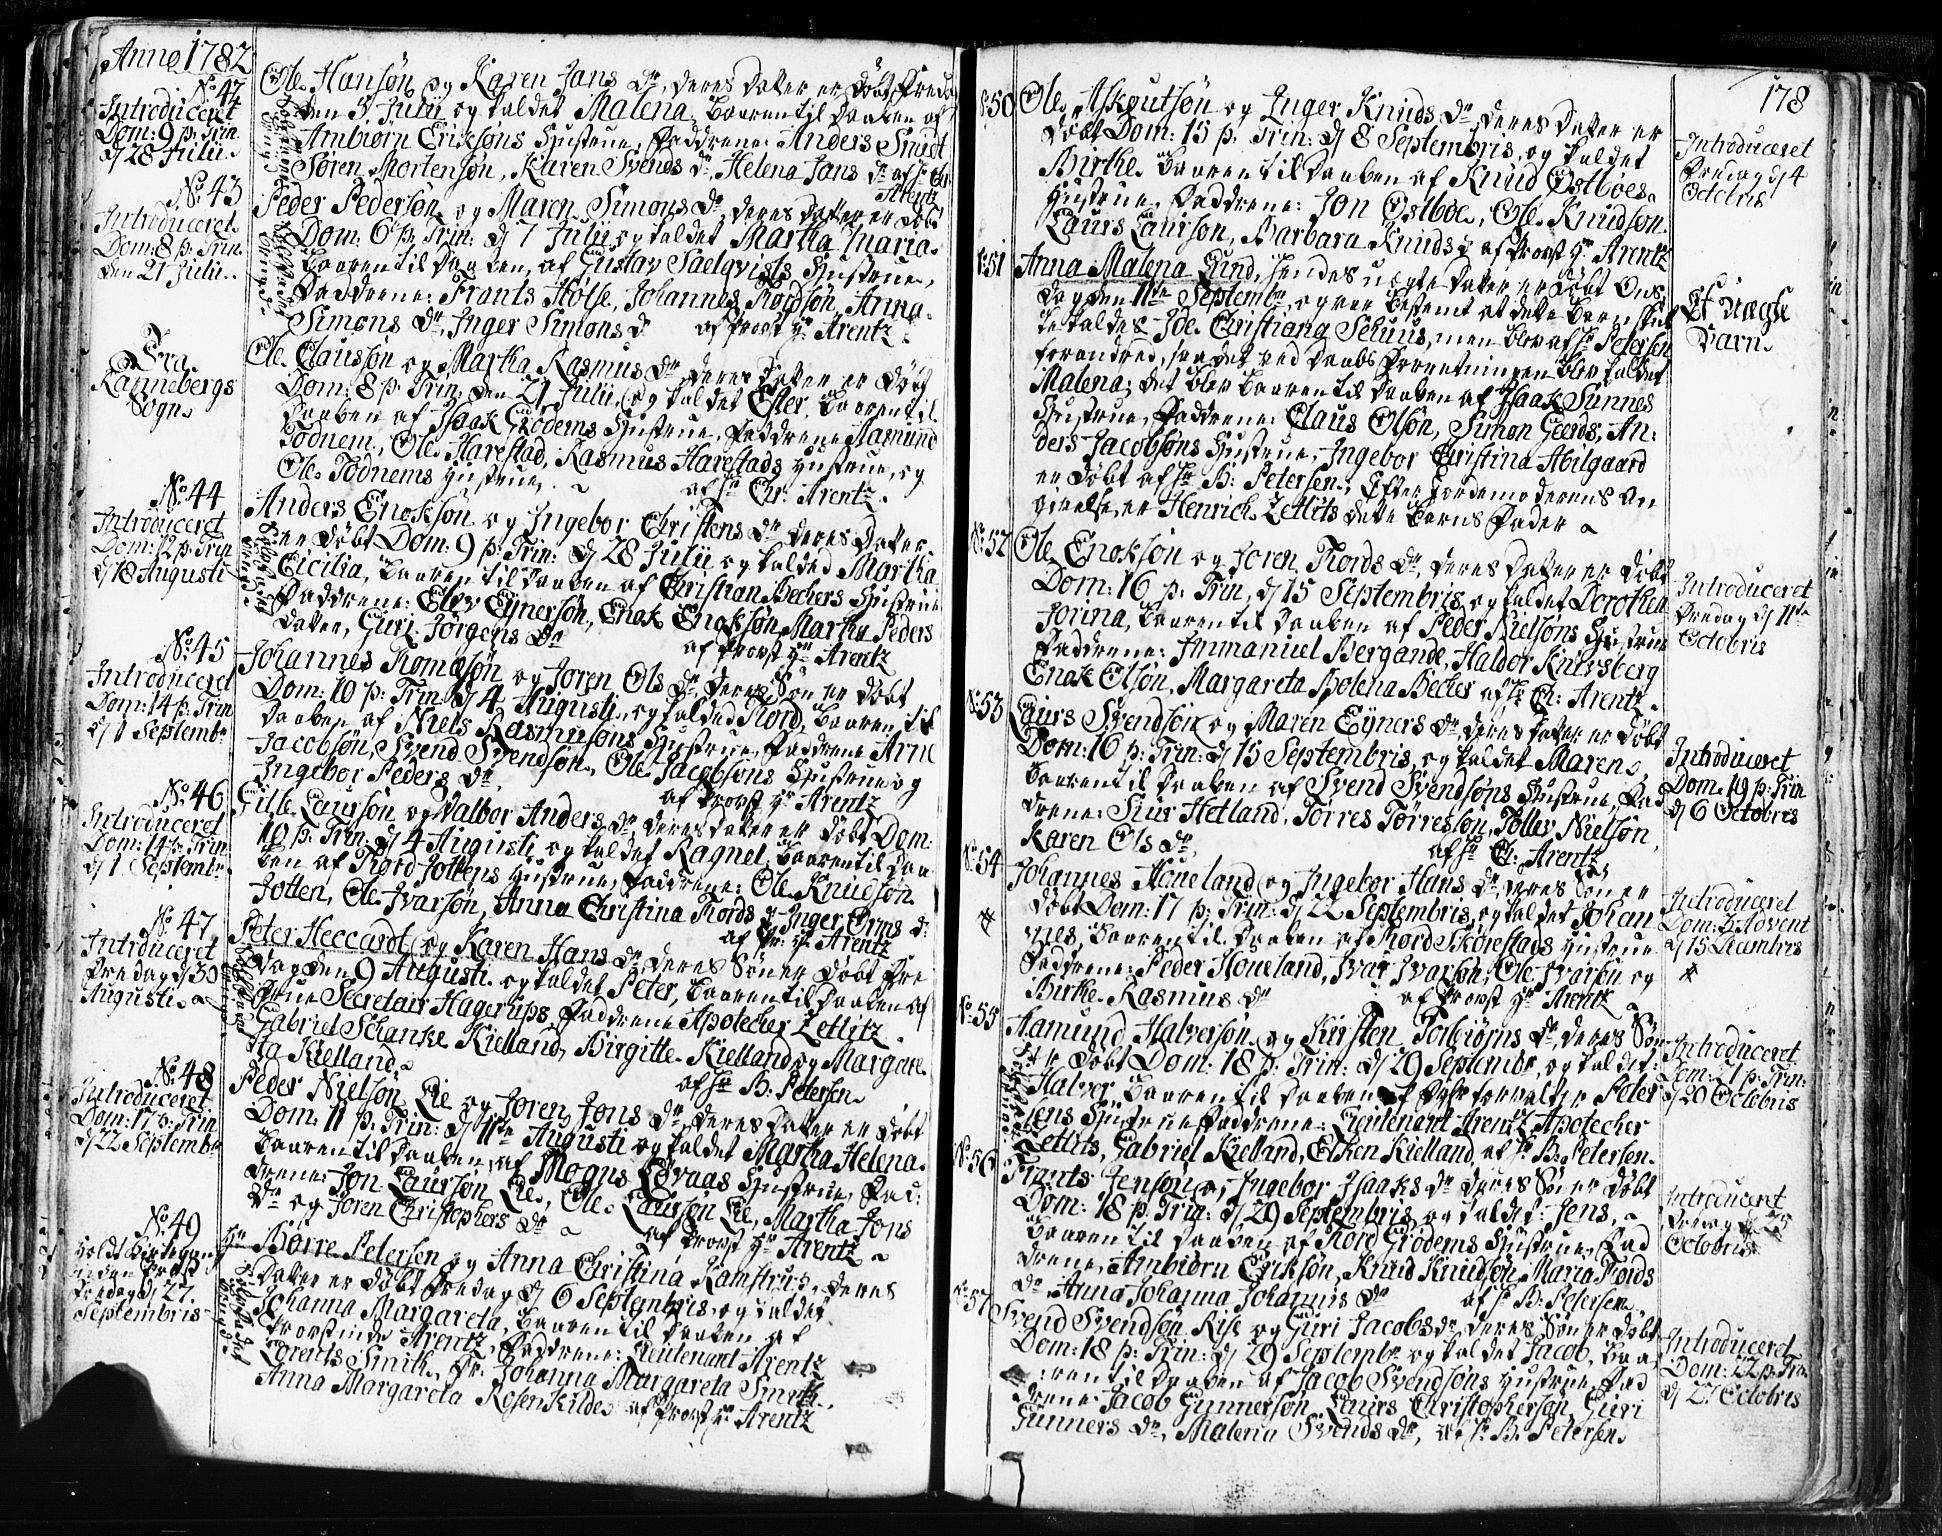 Anno 1782
No. 42
Introduceret
Dom: 9 p: Trin.
d 28 Julii.
Ole Hansøn og Karen Jans dr, deres Dater er døbt Freda
den 5 Julii og kaldet Malena, baaren til Daaben af
Ambiørn Eriksøns Hustrue, Faddrene: Anders Smidt
Søren Mortensøn, Karen Svends dr, Helena Jans dr af hr Chr:
Arentz
No. 43
Introduceret
Dom: 8 p: Trin.
den 21 Julii.
Peder Pedersøn og Maren Simons dr, deres Dater er døbt
Dom: 6 p: Trin: d 7 Julii og kaldet Martha Maria.
baaren til Daaben, af Gustav Saelqvists Hustrue,
Faddrene: Frants Holse, Johannes Tordsøn, Anna
Simons dr, Inger Simons dr af Provst Hr Arentz.
Fra
Rannebergs
Sogn.
Ole Clausøn og Martha Rasmus dr deres Dater er døbt
Dom: 8 p: Trin: den 21 Julii, og kaldet Ester, baaren til
Daaben af Isaak Grødems Hustrue, Faddrene Aamund
Todnem, Ole Harestad, Rasmus Harestads Hustrue, og
Ole Todnems Hustrue, af hr Chr: Arentz.
No. 44
Introduceret
Dom: 12 p: Trin
d 18 Augusti
Anders Enoksøn og Ingebor Christens dr deres Dater
er døbt Dom: 9 p: Trin: d 28 Julii og kaldet Martha
Cicilia, baaren til Daaben af Christian Bechers Hustrue
Faddrene: Elev Eynersøn, Enok Enoksøn, Martha Peders
Dater, Guri Jørgens dr af Provst Hr Arentz
No. 45
Introduceret
Dom: 14 p: Trin
d 1 Septembr
Johannes Romøsøn og Joren Ols dr, deres Søn er døbt
Dom: 10 p: Trin: d 4 Augusti, og kaldet Tord, baaren til
Daaben af Niels Rasmusøns Hustrue, Faddrene Arne
Jacobsøn, Svend Svendsøn, Ole Jacobsøns Hustrue og
Ingebor Peders dr, af Provst Hr Arentz
No. 46
Introduceret
Dom: 14 p: Trin
d 1 Septembr.
Gille Laursøn og Valbor Anders dr, deres Dater er døbt Dom:
10 p: Trin: d 4 Augusti og kaldet Ragnel, baaren til Daa
ben af Tord Jottens Hustrue, Faddrene: Ole Knudsøn
Jotten, Ole Ivarsøn, Anna Christina Tords dr Inger Orms dr
af Pr: Hr Arentz
No. 47
Introduceret
Fredag d 30
Augusti.
Peter Heccardt og Karen Hans dr deres Søn er døbt Fre
dag den 9 Augusti og kaldet Peter, baaren til Daaben af
Frue Secretair Hagerups, Faddrene Apotecher Zetlitz
Gabriel Schanke Kielland, Birgitte Kielland og Margare
ta Kielland. af Hr B: Petersen.
No. 48
Introduceret
Dom: 17 p: Trin
d 22 Septembr
Peder Nielsøn Lie og Joren Jons dr, deres Dater er døbt
Dom: 11 p: Trin: d 11te Augusti og kaldet Martha Helena.
baaren til Daaben, af Mogns Løvaas Hustrue, Fad:
drene: Jon Laursøn Lie, Ole Laursøn Lie, Martha Jons
dr og Joren Christophers dr af Provst Hr Arentz
No. 49
Fredag d 27.
Septembris
Hr Børre Petersen og Anna Christina Kamstrup, deres
Dater er døbt Fredag d 6 Septembris og kaldet
Johanna Margareta, baaren til Daaben af
Provstinde Arentz, Faddrene: Lieutenant Arentz
Lorents Smith, Fr: Johanna Margareta Smith
Anna Margareta Rosenkilde af Provst Hr Arentz
178
No: 50
Ole Askoutsøn og Inger Knuds dr deres Dater er
døbt Dom: 15 p: Trin: d 8 Septembris, og kaldet
Birthe, baaren til Daaben af Knud Østbøes
Hustrue, Faddrene: Jon Østbøe, Ole Knudsøn
Laurs Laursøn, Barbara Knuds dr af Provst Hr Arentz
Introduceret
Fredag d 4
Octobris
No: 51
Anna Malena Lund, hendes uægte Dater er døbt Ons
dag den 11te Septembr, og var bestemt at dette Barn skul
le kaldes Ide Christiana Sehuus, men blev af Hr Petersen
forandred, saa det ved Daabs Forretningen blev kaldet
Malena; det blev baaren til Daaben af Isaak Sunnes
Hustrue, Faddrene: Claus Olsøn, Simon Geerds, An:
ders Jacobsøns Hustrue, Ingebor Christina Abilgaard
er døbt af Hr B: Petersen; Efter Jordemoderens An
givelse, er Henrich Zetlits dette Barns Fader
Et uægte
Barn.
No: 52
Ole Enoksøn og Joren Tords dr, deres Dater er døbt
Dom: 16 p: Trin, d 15 Septembris og kaldet Dorothea
Jorina, baaren til Daaben af Peder Nielsøns Hustrue
Faddrene: Immanuel Bergande, Haldor Knivsberg
Enok Olsøn, Margareta Holena Becher af Hr Ch: Arentz.
Introduceret
Fredag d 11te
Octobris
No: 53
Laurs Svendsøn og Maren Eyners dr, deres Dater er døbt
Dom: 16 p: Trin: d 15 Septembris, og kaldet Maren,
baaren til Daaben af Svend Svendsøns Hustrue, Fad
drene: Siur Hetland, Tørres Tørresøn, Tollev Nielsøn,
Karen Ols dr, af Hr Ch: Arentz
Introduceret
Dom: 19 p: Trin
d 6 Octobris
No: 54
Johannes Houeland og Ingebor Hans dr, deres Søn er
døbt Dom: 17 p: Trin: d 22 Septembris, og kaldet Johan
nes, baaren til Daaben af Tord Skorestads Hustrue
Faddrene: Peder Houeland, Ivar Ivarsøn, Ole Ivarsøn og
Birthe Rasmus dr af Provst Hr Arentz
Introduceret
Dom: 3 Advent
d 15 Decembris
No: 55
Aamund Halversøn og Kirsten Torbiørns dr, deres Søn
er døbt Dom: 18 p: Trin: d 29 Septembr, og kaldet:
Halvor, baaren til Daaben af Peter
Jens Hustrue, Faddrene: Lieutenant Arentz, Apotecher
Zetlits, Gabriel Kielland, Elken Kielland, af Hr B: Petersen.
Introduceret
Dom: 21 p: Trin:
d 20 Octobris
No: 56
Frants Jensøn og Ingebor Isaaks dr deres Søn er døbt
Dom: 18 p: Trin: d 29 Septembris og kaldet Jens,
baaren til Daaben af Tord Grødems Hustrue, Fad
drene, Ambiørn Eriksøn, Knud Knudsøn, Maria Tords
dr Anna Johanna Johannis dr af Hr B: Petersen.
Introduceret
Fredag d 25
Octobris
No: 57
Svend Svendsøn Rise og Guri Jacobs dr, deres Søn er døbt
Dom: 18 p: Trin: d 29 Septembr og kaldet Jacob, baa
ren til Daaben af Jacob Svendsøns Hustrue, Fad
drene: Jacob Gunnersøn, Laurs Christophersøn, Guri
Gunners dr, Malena Svends dr, af Hr B: Petersen.
Introduceret
Dom: 22 p: Trin
d 27 Octobris